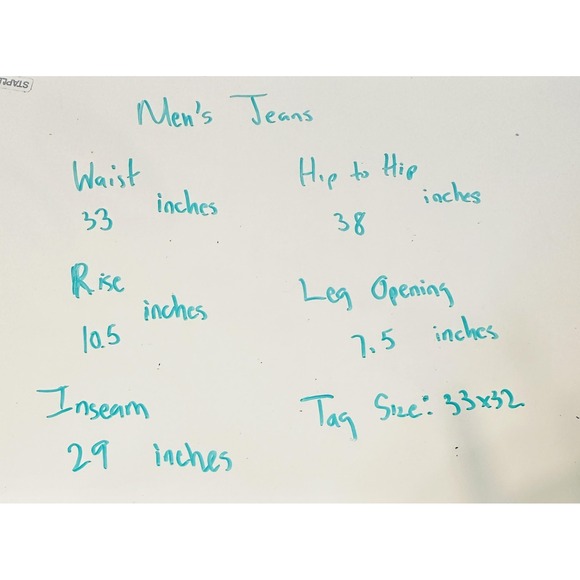 STAPLES
Men's Jeans
Waist
33 inches
Hip to Hip
38 inches
Rise
10.5 inches
Leg Opening
7.5 inches
Inseam
29 inches
Tag Size: 33x32